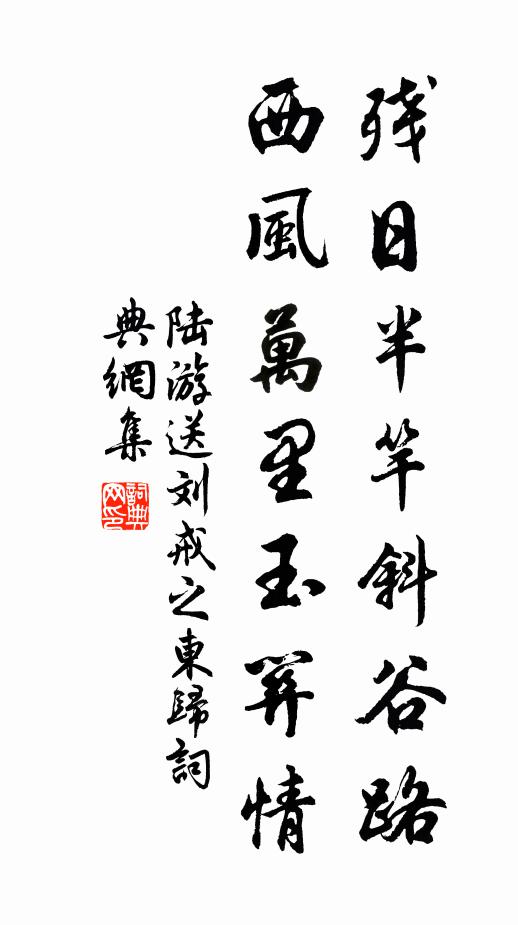 残日半竿斜谷路
西風萬里玉關情
陆游送刘戒之東歸詞
典網集
詞典网印